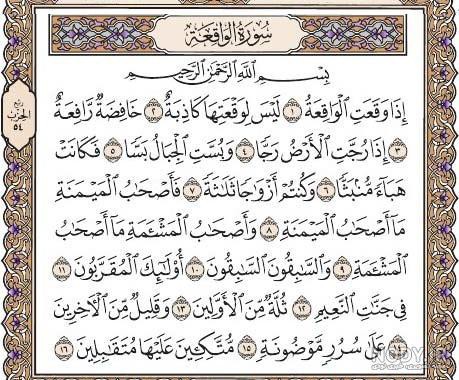 سُورَةُ الوَاقِعَةِ
بِسْمِ اللَّهِ الرَّحْمَٰنِ الرَّحِيمِ
إِذَا وَقَعَتِ الْوَاقِعَةُ ١ لَيْسَ لِوَقْعَتِهَا كَاذِبَةٌ ٢ خَافِضَةٌ رَّافِعَةٌ
٣ إِذَا رُجَّتِ الْأَرْضُ رَجًّا ٤ وَبُسَّتِ الْجِبَالُ بَسًّا ٥ فَكَانَتْ
هَبَاءً مُّنبَثًّا ٦ وَكُنتُمْ أَزْوَاجًا ثَلَاثَةً ٧ فَأَصْحَابُ الْمَيْمَنَةِ
مَا أَصْحَابُ الْمَيْمَنَةِ ٨ وَأَصْحَابُ الْمَشْـَٔمَةِ مَا أَصْحَابُ
الْمَشْـَٔمَةِ ٩ وَالسَّابِقُونَ السَّابِقُونَ ١٠ أُولَٰئِكَ الْمُقَرَّبُونَ ١١
فِي جَنَّاتِ النَّعِيمِ ١٢ ثُلَّةٌ مِّنَ الْأَوَّلِينَ ١٣ وَقَلِيلٌ مِّنَ الْآخِرِينَ
١٤ عَلَىٰ سُرُرٍ مَّوْضُونَةٍ ١٥ مُّتَّكِئِينَ عَلَيْهَا مُتَقَابِلِينَ ١٦
ربع
الحزب
٥٤